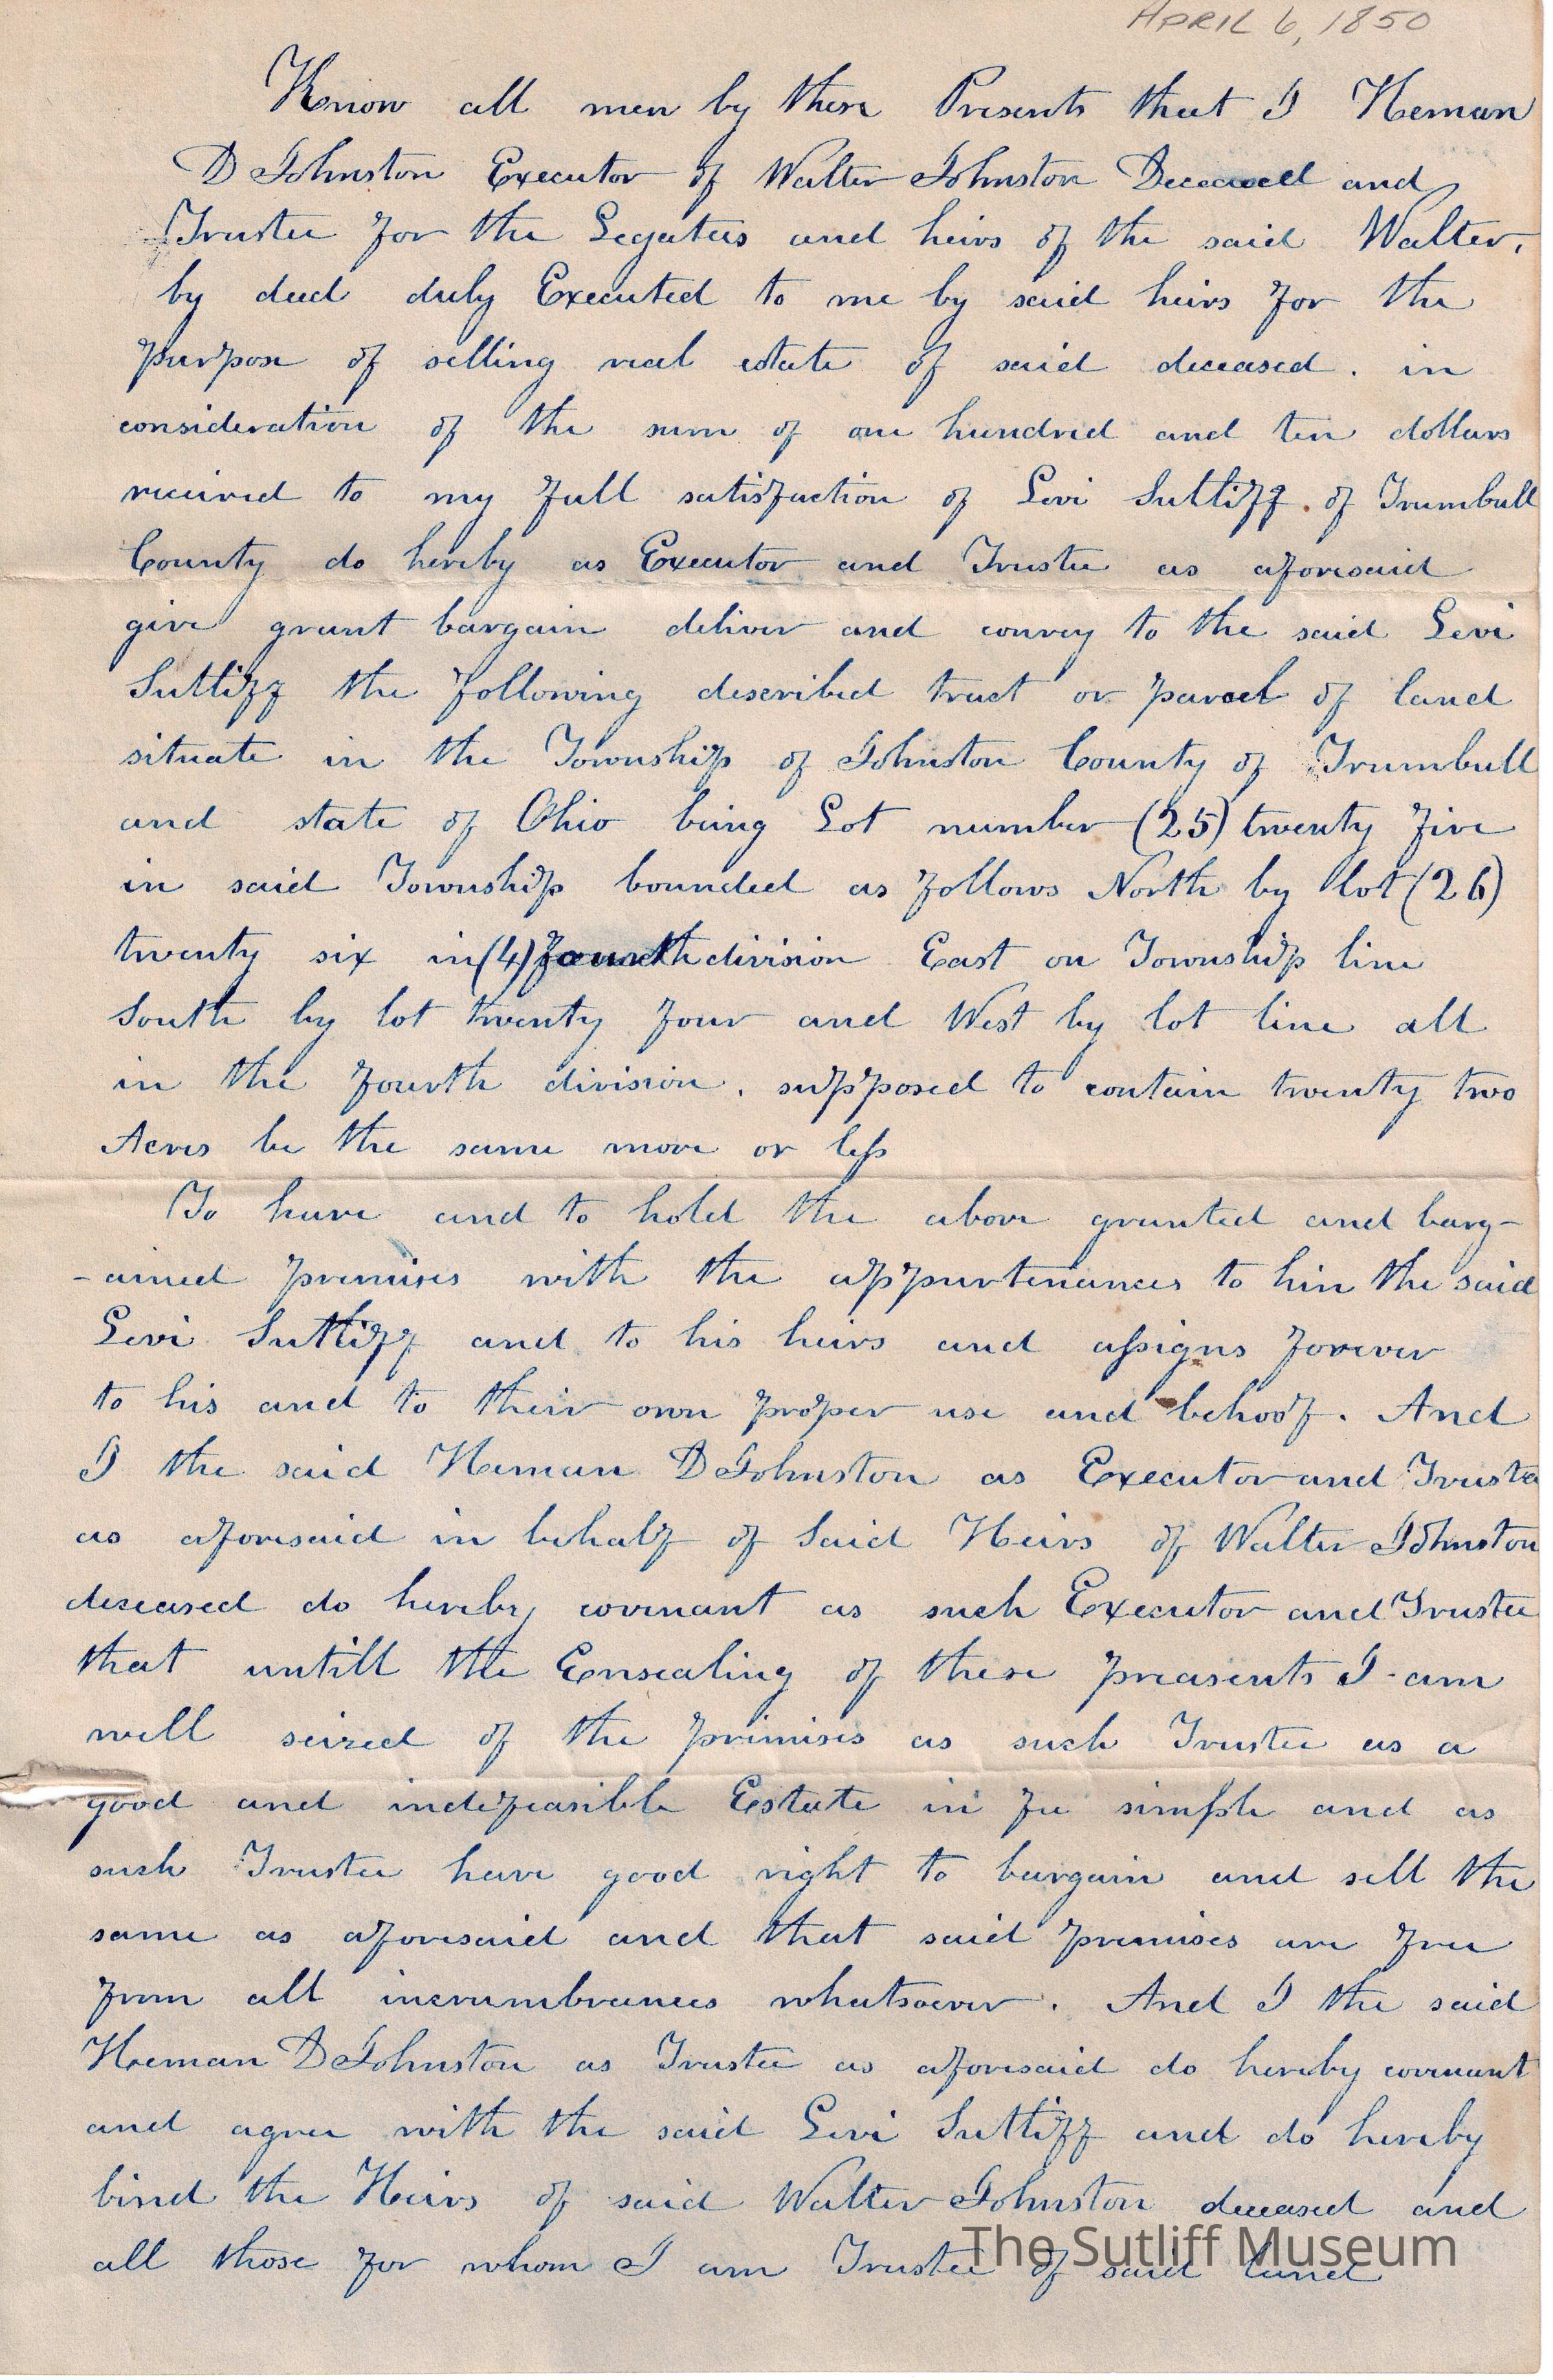 APRIL 6, 1850
Know all men by these Presents that I Heman
D Johnston Executor of Walter Johnston Deceased and
Trustee for the Legatees and heirs of the said Walter,
by deed duly Executed to me by said heirs for the
purpose of selling real estate of said deceased. in
consideration of the sum of one hundred and ten dollars
received to my full satisfaction of Levi Sutliff. of Trumbull
County do hereby as Executor and Trustee as aforesaid
give grant bargain deliver and convey to the said Levi
Sutliff the following described tract or parcel of land
situate in the Township of Johnston County of Trumbull
and state of Ohio being Lot number (25) twenty five
in said Township bounded as follows North by lot (26)
twenty six in (4) fourth division East on Township line
South by lot twenty four and West by lot line all
in the fourth division, supposed to contain twenty two
Acres be the same more or less
To have and to hold the above granted and barg-
-ained premises with the appurtenances to him the said
Levi Sutliff and to his heirs and assigns forever
to his and to their own proper use and behoof. And
I the said Heman D Johnston as Executor and Trustee
as aforesaid in behalf of Said Heirs of Walter Johnston
deseased do hereby covenant as such Executor and Trustee
that untill the Ensealing of these preasents I am
well seized of the primises as such Trustee as a
good and indefeasible Estate in fee simple and as
such Trustee have good right to bargain and sell the
same as aforesaid and that said premises are free
from all incumbrances whatsoever. And I the said
Heman D Johnston as Trustee as aforesaid do hereby covenant
and agree with the said Levi Sutliff and do hereby
bind the Heirs of said Walter Johnston deceased and
all those for whom I am Trustee of said land
The Sutliff Museum